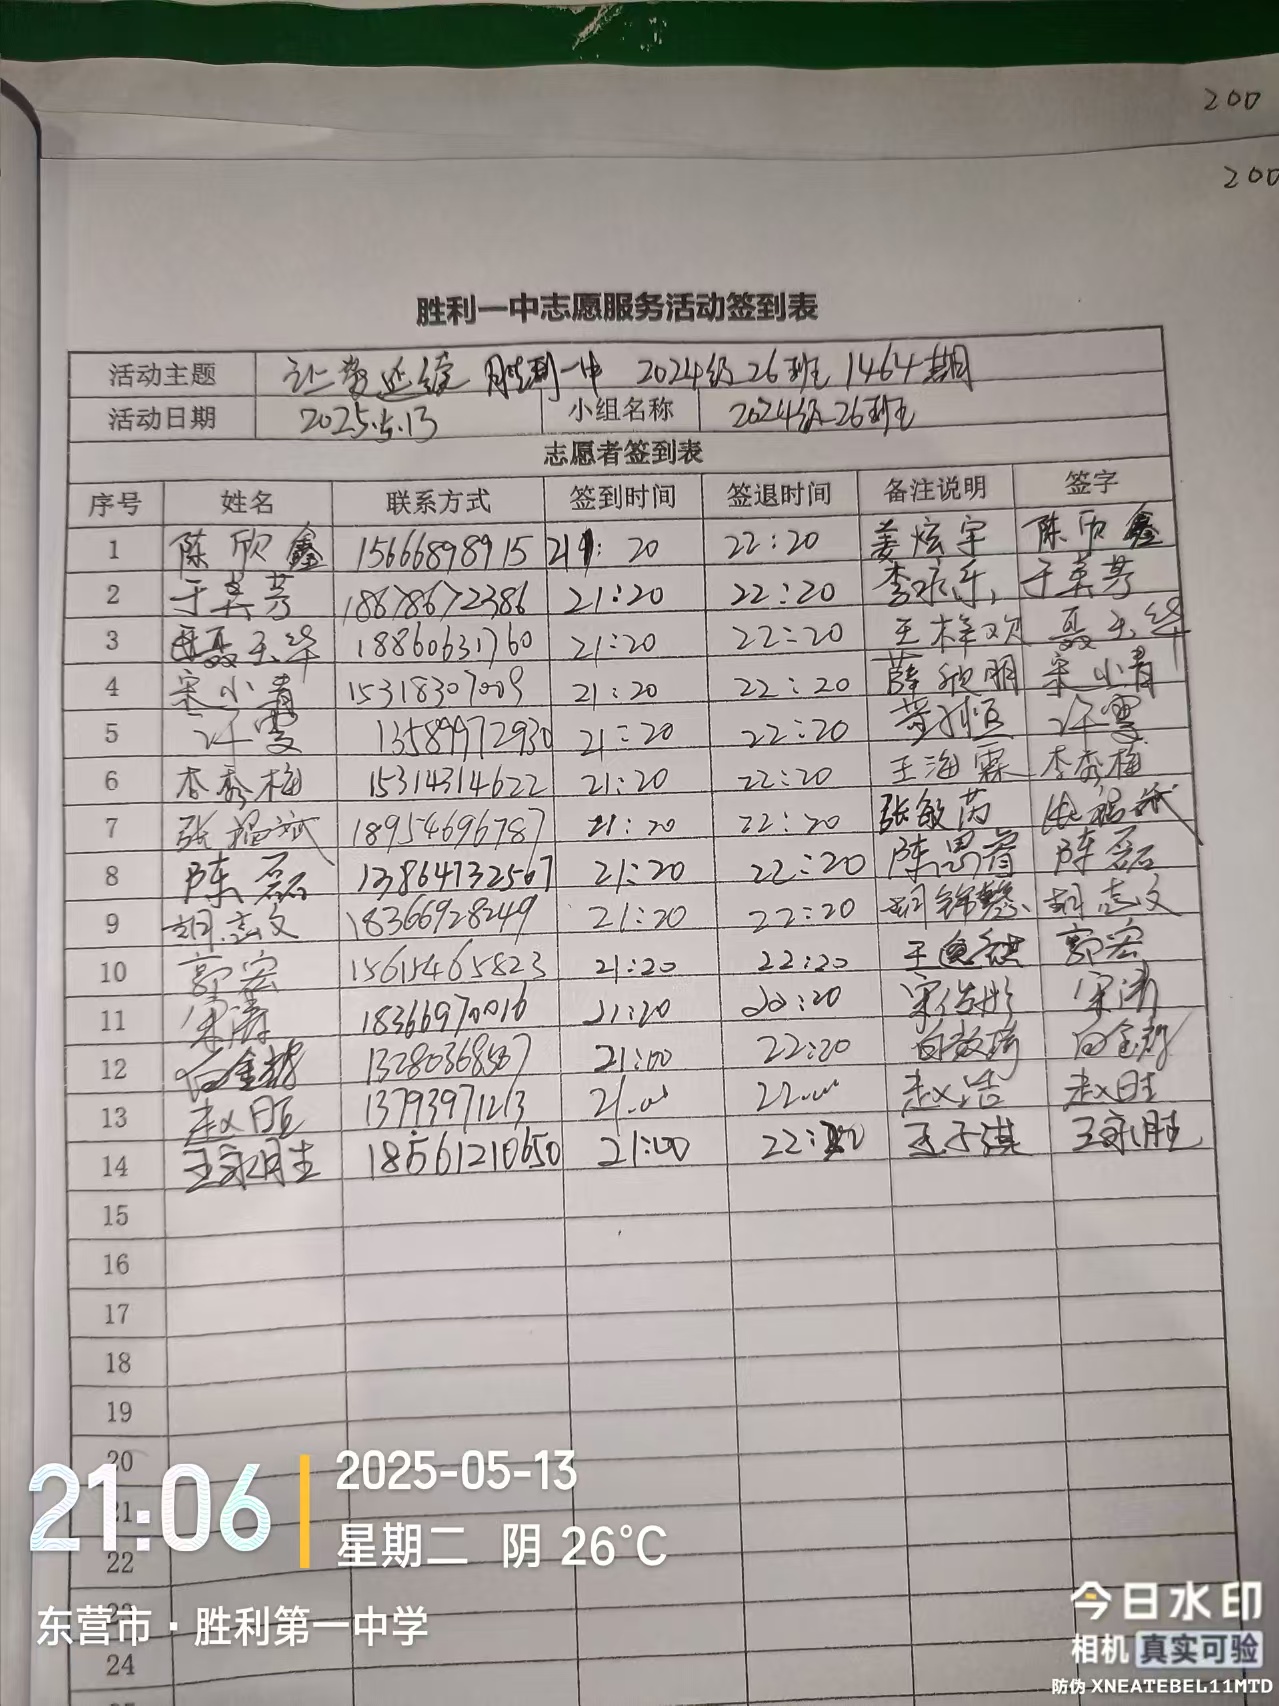 200
200
胜利一中志愿服务活动签到表
活动主题 让爱延续 胜利一中 2024级26班 1464期
活动日期 2025.5.13 小组名称 2024级26班
志愿者签到表
序号 姓名 联系方式 签到时间 签退时间 备注说明 签字
1 陈欣鑫 15666898915 21:20 22:20 姜炫宇 陈欣鑫
2 于美芳 18678672386 21:20 22:20 李永乐 于美芳
3 聂玉华 18860631760 21:20 22:20 王梓欢 聂玉华
4 宋小青 15318307009 21:20 22:20 薛欣明 宋小青
5 许雯 13589972930 21:20 22:20 许雯
6 李秀梅 15314314622 21:20 22:20 王海霖 李秀梅
7 张福斌 18954696787 21:20 22:20 张敏芮 张福斌
8 陈磊 13864732567 21:20 22:20 陈思睿 陈磊
9 胡志文 18366928249 21:20 22:20 胡锦慧 胡志文
10 郭宏 15615465823 21:20 22:20 郭宏
11 宋涛 18366970016 21:20 22:20 宋 彤 宋涛
12 白金 13280368507 21:00 22:20 白 琦 白金
13 赵旺 13793971213 21:00 22:00 赵浩 赵旺
14 王永胜 18561210650 21:00 22:20 王子琪 王永胜
15
16
17
18
19
20
21
22
23
24
21:06
2025-05-13
星期二 阴 26°C
东营市·胜利第一中学
今日水印
相机 真实可验
防伪 XNEATEBEL11MTD